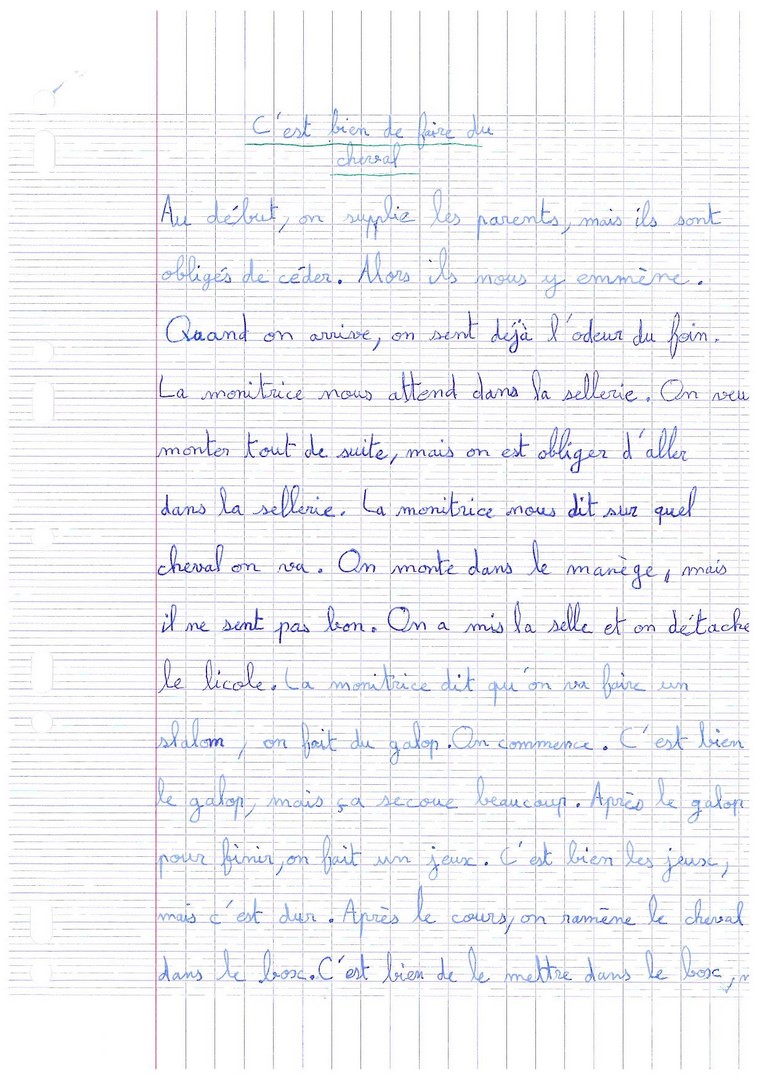 C'est bien de faire du
cheval
Au début, on supplie les parents, mais ils sont
obligés de céder. Alors ils nous y emmène.
Quand on arrive, on sent déjà l'odeur du foin.
La monitrice nous attend dans la sellerie. On veu
monter tout de suite, mais on est obliger d'aller
dans la sellerie. La monitrice nous dit sur quel
cheval on va. On monte dans le manège, mais
il ne sent pas bon. On a mis la selle et on détache
le licole. La monitrice dit qu'on va faire un
slalom, on fait du galop. On commence. C'est bien
le galop, mais ça secoue beaucoup. Après le galop
pour finir, on fait un jeux. C'est bien les jeux,
mais c'est dur. Après le cours, on ramène le cheval
dans le box. C'est bien de le mettre dans le box,